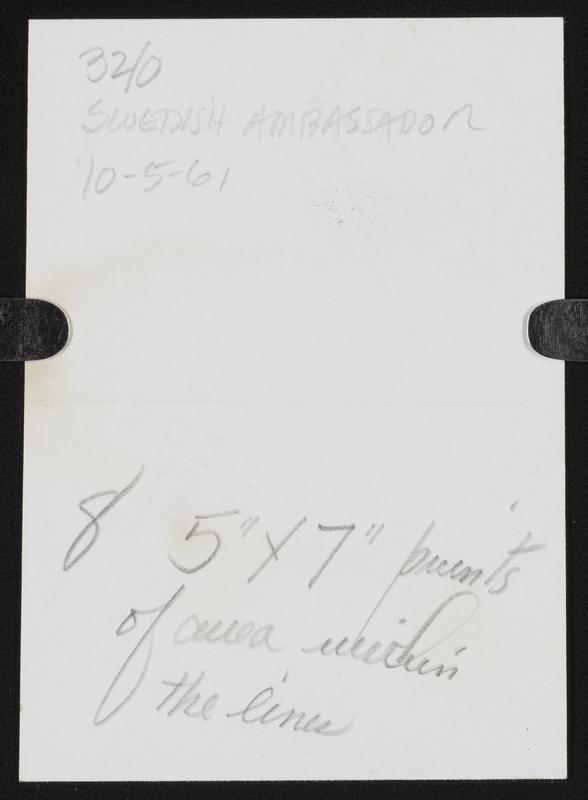 32/0
SWEDISH AMBASSADOR
10-5-61
8 5" X 7" prints
of area within
the lines